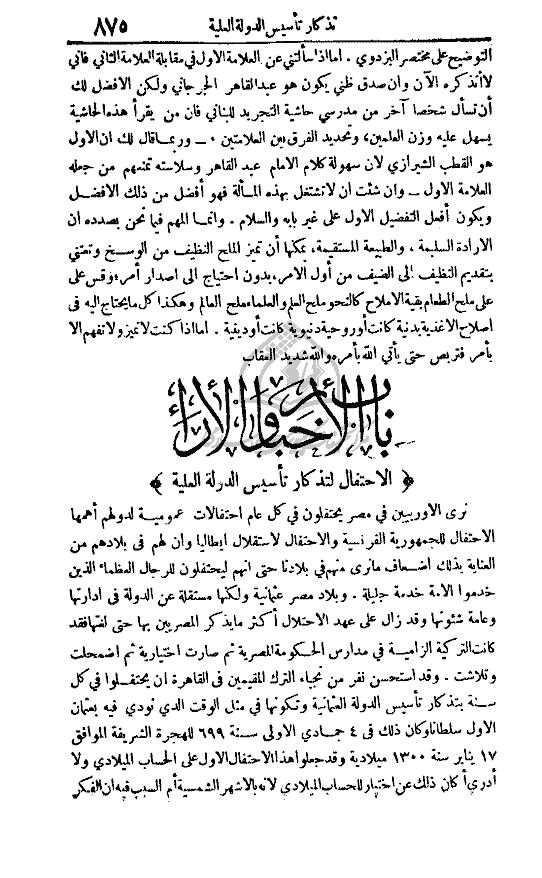 تذكار تأسيس الدولة العلية ٨٧٥
التوضيح على مختصر البزدوي . اما اذا سألتني عن العلامة الاول في مقابلة العلامة الثاني فاني
لا أتذكره الآن وان صدق ظني يكون هو عبد القاهر الجرجاني ولكن الافضل لك
أن تسأل شخصا آخر من مدرسي حاشية التجريد للبناني فان من يقرأ هذه الحاشية
يسهل عليه وزن العلمين، وتحديد الفرق بين العلامتين ٠ ــ وربما قال لك ان الاول
هو القطب الشيرازي لان سهولة كلام الامام عبد القاهر وسلاسته تمنعهم من جعله
العلامة الاول ــ وان شئت ان لا تشتغل بهذه المسألة فهو أفضل من ذلك الافضل
ويكون أفعل التفضيل الاول على غير بابه والسلام . وانما المهم فيما نحن بصدده ان
الارادة السليمة ، والطبيعة المستقيمة، يمكنها أن تميز الملح النظيف من الوسخ وتعتني
بتقديم النظيف الى الضيف من أول الامر، بدون احتياج الى اصدار أمر، وقس على
على ملح الطعام بقية الاملاح كالنحو ملح العلم والعلماء ملح العالم وهكذا كل ما يحتاج اليه في
اصلاح الاغذية بدنية كانت أو روحية دنيوية كانت أو دينية . اما اذا كنت لا تميز ولا تفهم الا
بأمر فتربص حتى يأتي الله بأمره والله شديد العقاب
باب الاخبار والآراء
﴿ الاحتفال لتذكار تأسيس الدولة العلية ﴾
نرى الاوربيين في مصر يحتفلون في كل عام احتفالات عمومية لدولهم أهمها
الاحتفال للجمهورية الفرنسية والاحتفال لاستقلال ايطاليا وان لهم في بلادهم من
العناية بذلك أضعاف ما نرى منهم في بلادنا حتى انهم ليحتفلون للرجال العظماء الذين
خدموا الامة خدمة جليلة . وبلاد مصر عثمانية ولكنها مستقلة عن الدولة في ادارتها
وعامة شئونها وقد زال على عهد الاحتلال أكثر ما يذكر المصريين بها حتى لغتها فقد
كانت التركية الزامية في مدارس الحكومة المصرية ثم صارت اختيارية ثم اضمحلت
وتلاشت . وقد استحسن نفر من نجباء الترك المقيمين في القاهرة ان يحتفلوا في كل
سنة بتذكار تأسيس الدولة العثمانية وتكونها في مثل الوقت الذي نودي فيه بعثمان
الاول سلطانا وكان ذلك في ٤ جمادي الاولى سنة ٦٩٩ للهجرة الشريفة الموافق
١٧ يناير سنة ١٣٠٠ ميلادية وقد جعلوا هذا الاحتفال الاول على الحساب الميلادي ولا
أدري أ كان ذلك عن اختيار للحساب الميلادي لانه بالاشهر الشمسية أم السبب فيه ان الفكر